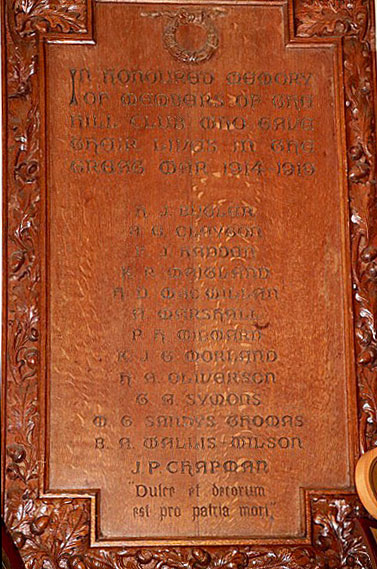 IN HONOURED MEMORY
OF MEMBERS OF THE
HILL CLUB WHO GAVE
THEIR LIVES IN THE
GREAT WAR 1914-1919
H. J. BUGLER
CLAYSON
J. HADDON
MAITLAND
MACMILLAN
A. MARSHALL
P. H.
K. J. G. MORLAND
H. A. OLIVERSON
G. A. SYMONS
M. G. SANDYS THOMAS
B. A. WALLIS-WILSON
J. P. CHAPMAN
"Dulce et decorum
est pro patria mori."